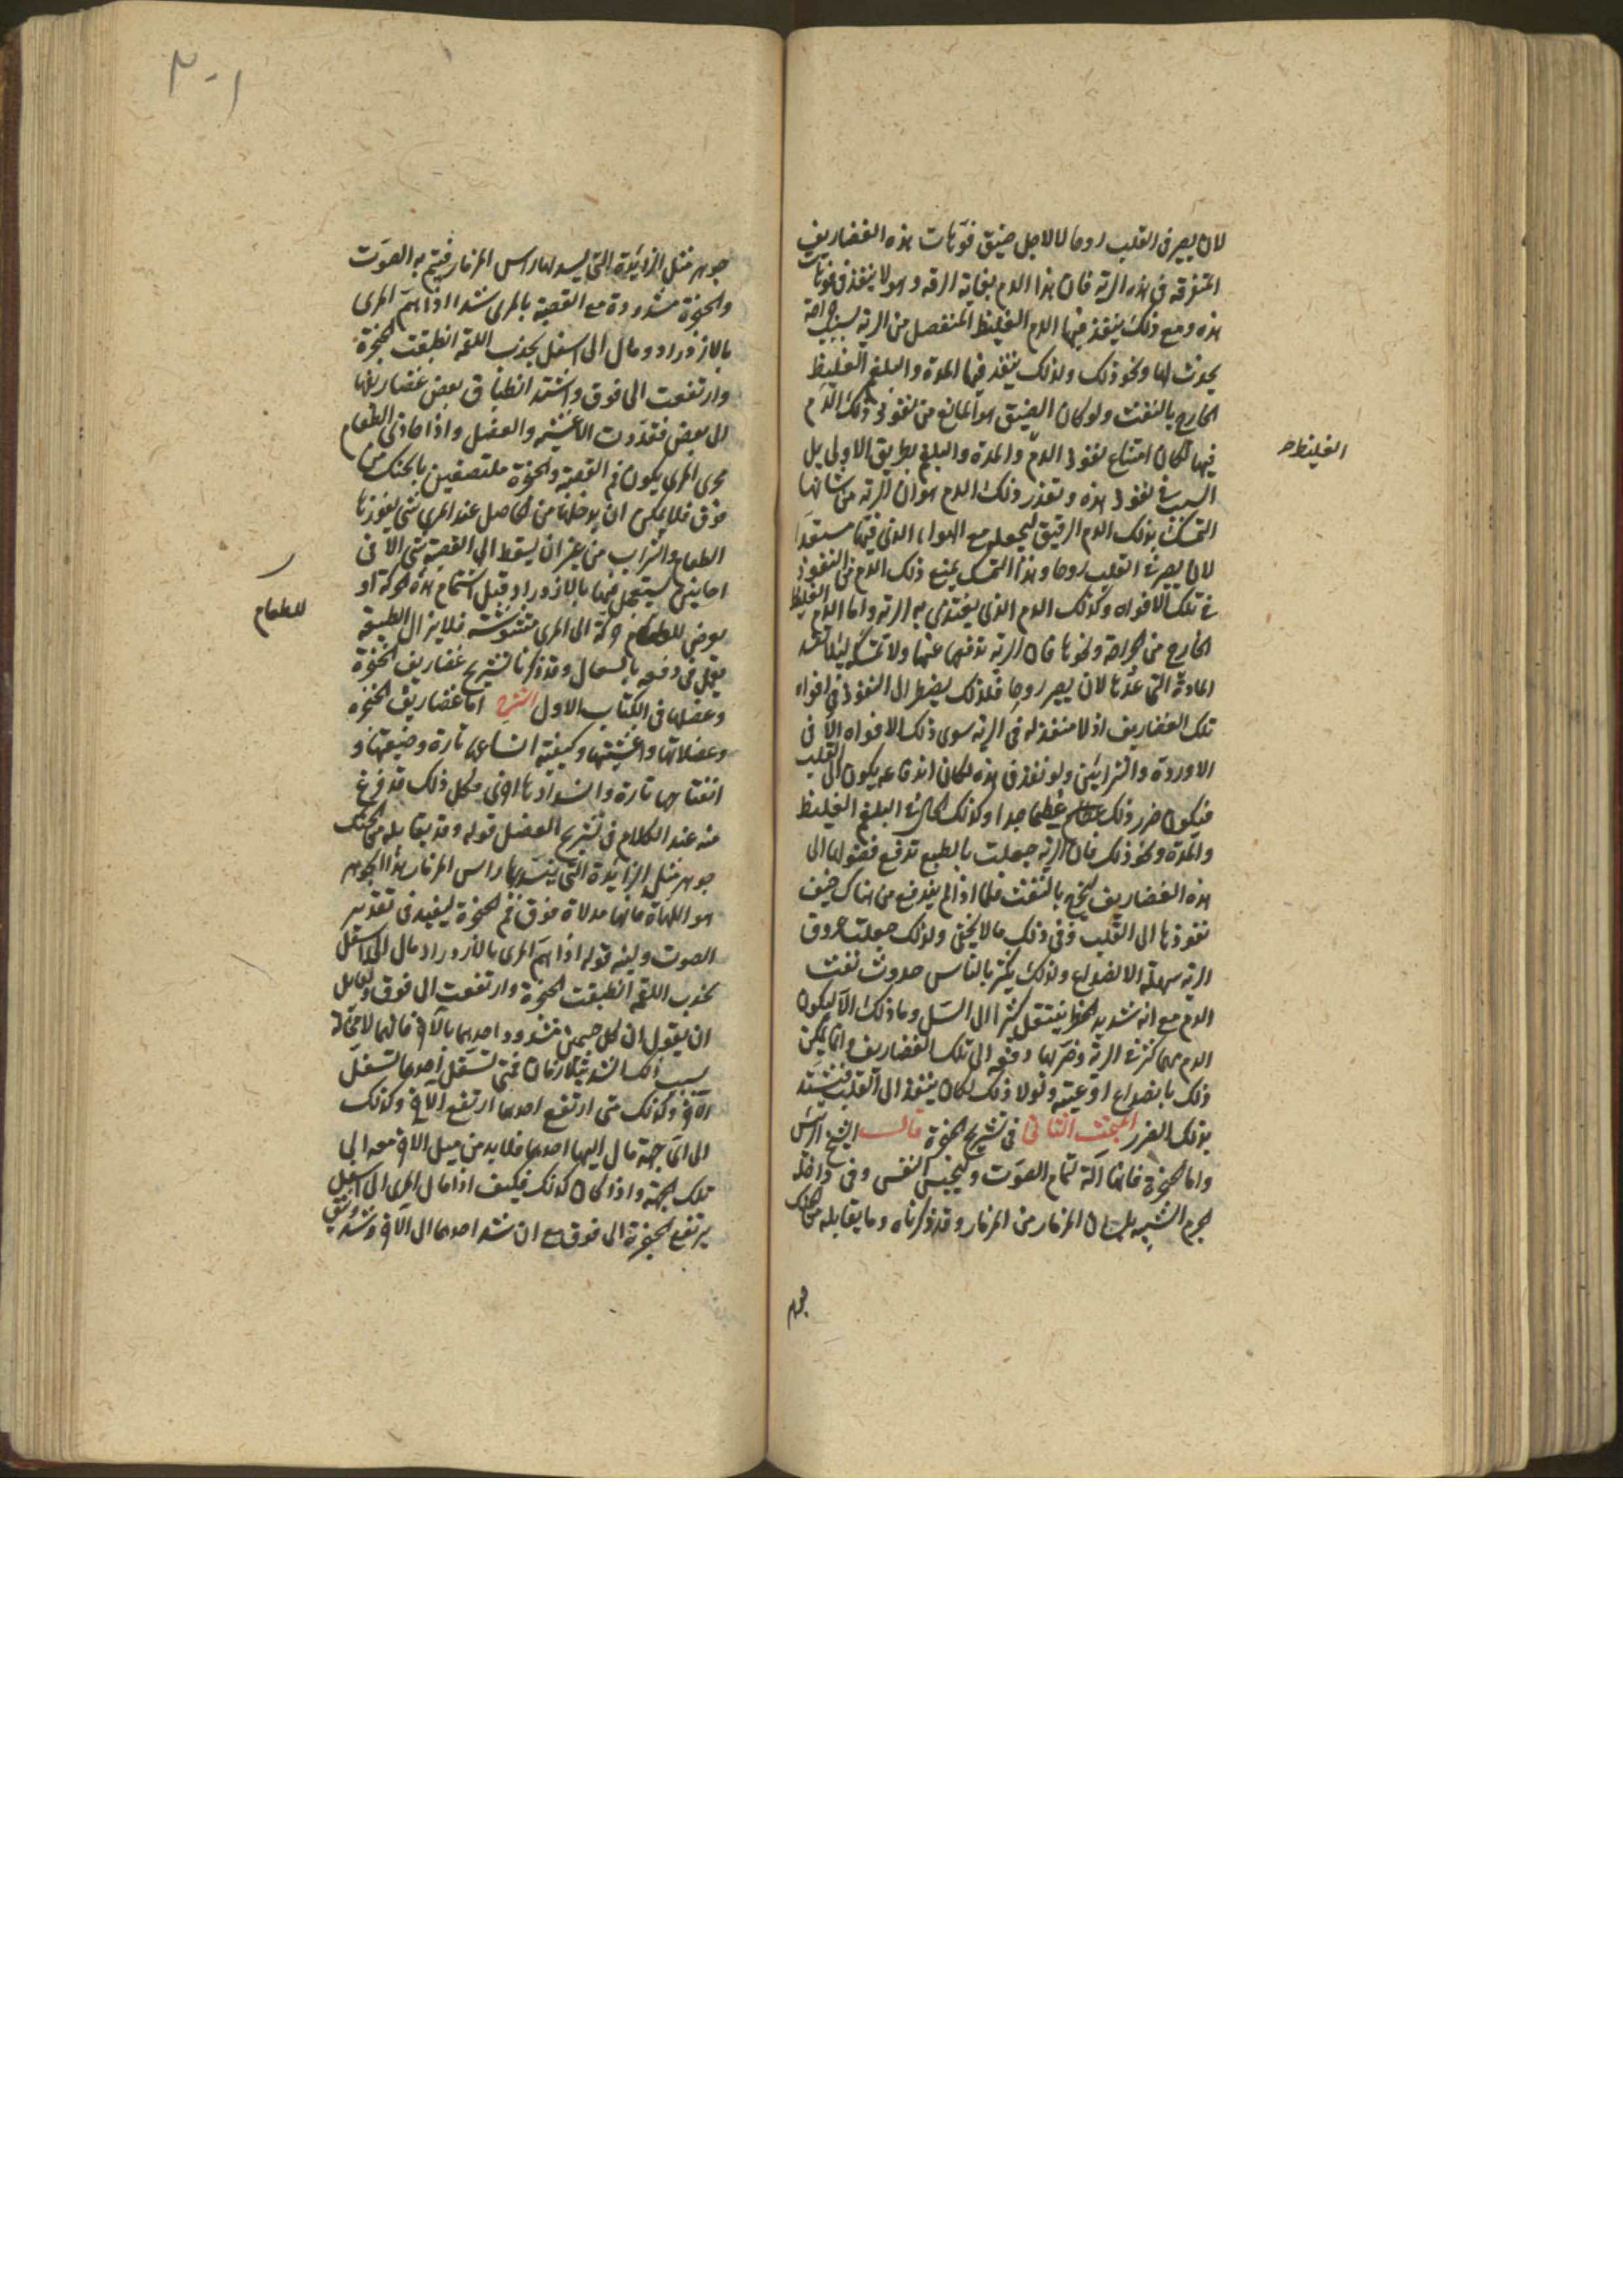 لان يصير فى القلب روحا لا لاجل ضيق فوهات هذه الغضاريف
المتفرقه فى هذه الرية فان هذا الدم بغاية الرقه وهو لا ينفذ فى فوهات
هذه ومع ذلك ينفذ فيها الدم الغليظ المنفصل من الرية بسبب جراحة
يحدث لها ونحو ذلك ولذلك ينفذ فيها المدة والبلغم الغليظ
الخارج بالنفث ولو كان الضيق هو المانع من نفوذ ذلك الدم
فيها لكان امتناع نفوذ الدم والمدة والبلغم بطريق الاولى بل
الغليظ صح
السبب فى نفوذ هذه وتعذر ذلك الدم هو ان الرية من شانها
التمسك بذلك الدم الرقيق ليجعله مع الهواء الذى فيها مستعدا
لان يصير فى القلب روحا وهذا التمسك يمنع ذلك الدم من النفوذ
فى تلك الافواه وكذلك الدم الذى يغتذى به الرية واما الدم الغليظ
الخارج من جراحة ونحوها فان الرية تدفعها عنها ولا تمسكه ليلا تفسد
المادة التى تعدها لان يصير روحا فلذلك يضطر الى النفوذ فى افواه
تلك الغضاريف اذ لا منفذ له فى الرية سوى ذلك الافواه الا فى
الاوردة والشرايين ولو نفذ فى هذه لكان اندفاعه يكون الى القلب
فيكون ضرر ذلك عظيما جدا وكذلك الحال فى البلغم الغليظ
والمدة ونحو ذلك فان الرية جعلت بالطبع تدفع فضولها الى
هذه الغضاريف ليخرج بالنفث فلما اذا لم يندفع من هناك خيف
نفوذها الى القلب وفى ذلك ما لا يخفى ولذلك جعلت عروق
الرية سهلة الانصداع ولذلك يكثر بالناس حدوث نفث
الدم مع انه شديد الخطر ينتقل كثيرا الى السل وما ذلك الا ليكون
الدم مهما كثر فى الرية وضر بها دفعه الى تلك الغضاريف وانما يمكن
ذلك بانصداع اوعيته ولولا ذلك لكان ينفذ الى القلب فيشتد
بذلك الضرر المبحث الثانى فى تشريح الحنجرة قال الشيخ الرئيس
واما الحنجرة فانها آلة لتمام الصوت ولحبس النفس وفى داخله
الجرم الشبيه بلسان المزمار من المزمار وقد ذكرناه وما يقابله من الحنك
جوهر
٣٠١
جوهر مثل الزائدة التى يسد لها راس المزمار فيتم به الصوت
والحنجرة مشدودة مع القصبة بالمرى شدا اذا هم المرى
بالازدراد ومال الى اسفل لجذب اللقمه انطبقت الحنجرة
وارتفعت الى فوق واشتد انطباق بعض غضاريفها
الى بعض فتمددت الاغشيه والعضل واذا حاذى الطعام
مجرى المرى يكون فم القصبة والحنجرة ملتصقين بالحنك من
فوق فلا يمكن ان يدخلها من الحاصل عند المرى شى يفوزها
الطعام والشراب من غير ان يسقط الى القصبة شى الا فى
احايين يستعجل فيها بالازدراد قبل استتمام هذه الحركة او
يعرض للطعام حركة الى المرى مشوشة فلا يزال الطبيعة
للطعام
يعمل فى دفعه بالسعال وقد ذكرنا تشريح غضاريف الحنجرة
وعضلها فى الكتاب الاول الشرح اما غضاريف الحنجره
وعضلاتها واغشيتها وكيفية اتساعها تارة وضيقها و
انفتاحها تارة وانسدادها اخرى فكل ذلك قد فرغ
منه عند الكلام فى تشريح العضل قوله وقد يقابله من الحنك
جوهر مثل الزائدة التى ينسد بها راس المزمار هذا الجوهر
هو اللهاة فانها مدلاة فوق فم الحنجرة ليفيد فى تقدير
الصوت ولينه قوله اذا هم المرى بالازدراد مال الى اسفل
لجذب اللقمه انطبقت الحنجرة وارتفعت الى فوق ولقايل
ان يقول ان كل جسمين مشدود احدهما بالآخر فانهما لا محالة
بسبب ذلك الشد يتلازمان فمتى تسفل احدهما تسفل
الآخر وكذلك متى ارتفع احدهما ارتفع الآخر وكذلك
الى اى جهة مال اليها احدهما فلا بد من ميل الآخر معه الى
تلك الجهة واذا كان كذلك فكيف اذا مال المرى الى اسفل
يرتفع الحنجرة الى فوق مع ان شد احدهما الى الآخر شد وثيق